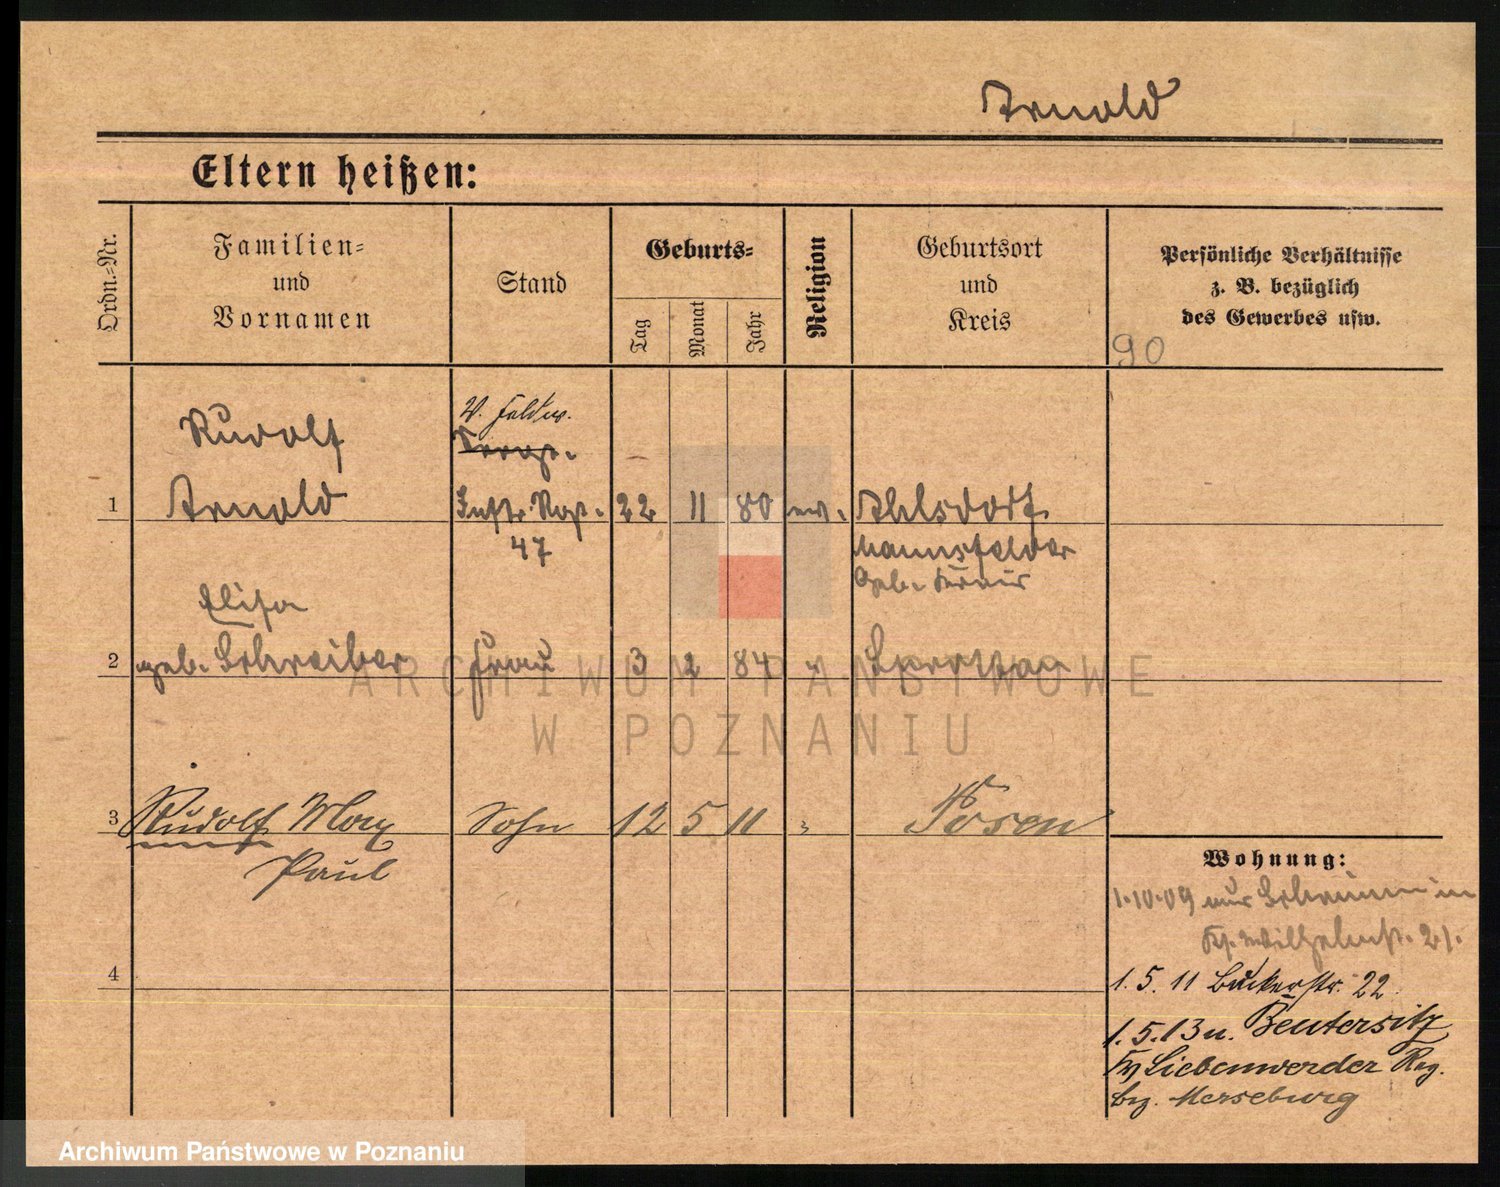 Arnold
Eltern heißen:
Ordn.-Nr.
Familien-
und
Vornamen
Stand
Geburts-
Tag
Monat
Jahr
Religion
Geburtsort
und
Kreis
Persönliche Verhältnisse
z. B. bezüglich
des Gewerbes usw.
90
1
Rudolf
Arnold
Feldw.
Inftr. Rgt.
47
22 11 80 ev.
Ahlsdorf
Mannsfelder
2
Elisa
geb. Schreiber
Frau
3 2 84 "
3
Rudolf Max
Paul
Sohn
12 5 11 "
Posen
4
Wohnung:
1.10.09
Wilhelmstr. 21.
1. 5. 11 Bukerstr. 22
1. 5. 13 n. Beutersitz
Liebenwerder Reg.
bez. Merseburg
ARCHIWUM PAŃSTWOWE
W POZNANIU
Archiwum Państwowe w Poznaniu